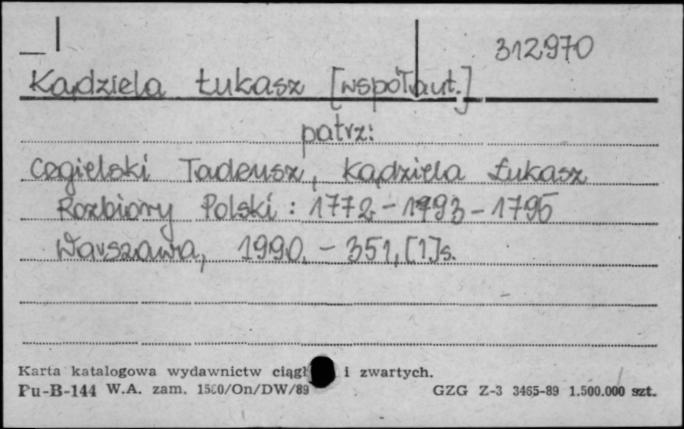 312970
Kądziela Łukasz [współaut.]
patrz:
Cegielski Tadeusz, Kądziela Łukasz
Rozbiory Polski : 1772 - 1793 - 1795
Warszawa, 1990. - 351, [1] s.
Karta katalogowa wydawnictw ciągł i zwartych.
Pu-B-144 W.A. zam. 1580/On/DW/89 GZG Z-3 3465-89 1.500.000 szt.